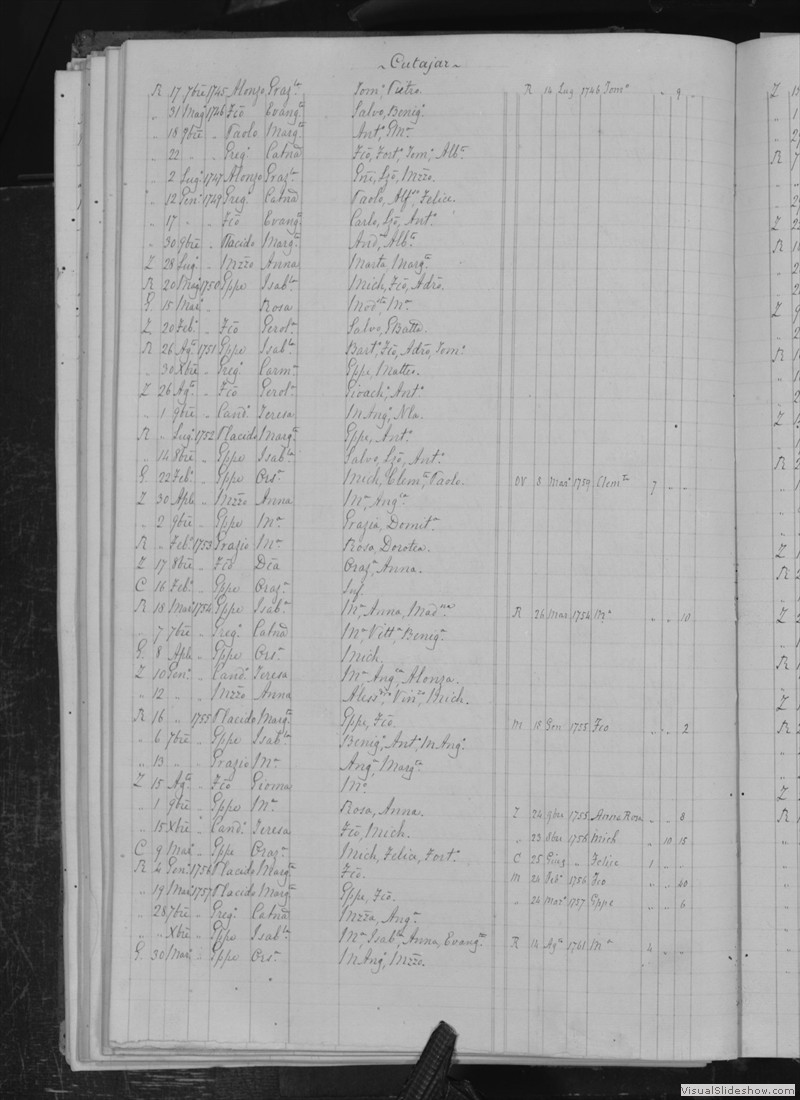 ~ Cutajar ~
R 17 7bre 1745 Alonzo Graz.la Tom.o Pietro. R 14 Lug 1746 Tom.o „ 9 „
„ 31 Mag 1746 Fcō Evang.ta Salvo, Benig.o
„ 18 9bre „ Paolo Marg.ta Ant.o, G.M.a
„ 22 „ „ Greg.o Catnā Fcō, Fort.o, Tom.o, Alb.o
„ 2 Lug.o 1747 Alonzo Graz.la Gnī, Lzō, Mzzō.
„ 12 Gen.o 1749 Greg.o Catnā Paolo, Alf.so, Felice.
„ 17 „ „ Fcō Evang.ta Carlo, Lzō, Ant.o
„ 30 9bre „ Placido Marg.ta And.a, Alb.o
Z 28 Lug.o „ Mzzō Anna Marta, Marg.ta
R 20 Mag.o 1750 Gppe Isab.la Mich, Fcō, Adrō.
G. 15 Mar.o „ Rosa Mod.ta, M.a
Z 20 Feb.o „ Fcō Gerol.a Salvo, GBatta.
R 26 Ag.to 1751 Gppe Isab.la Bart.o, Fcō, Adrō, Tom.o
„ 30 Xbre „ Greg.o Carm.a Gppe, Matteo.
Z 26 Ag.to „ Fcō Gerol.a Gioach.o, Ant.o
„ 1 9bre „ Cand.o Teresa MAng.o, Nla.
R „ Lug.o 1752 Placido Marg.ta Gppe, Ant.o
„ 14 8bre „ Gppe Isab.la Salvo, Lzō, Ant.o
G. 22 Feb.o „ Gppe Ors.a Mich, Clem.te, Paolo. OV 3 Mar.o 1759 Clem.te 7 „ „
Z 30 Aple „ Mzzō Anna M.a, Ang.la
„ 2 9bre „ Gppe M.a Grazia, Domit.a
R „ Feb.o 1753 Grazio M.a Rosa, Dorotea.
Z 17 8bre „ Fcō Dca Oraz.a, Anna.
C 16 Feb.o „ Gppe Oraz.a Inf.
R 18 Mar.o 1754 Gppe Isab.la M.a, Anna, Mad.na R 24 Mar. 1754 M.a „ „ 10
„ 7 7bre „ Greg.o Catnā M.a, Vitt.a, Benig.a
G. 8 Aple „ Gppe Ors.a Mich.
Z 10 Gen.o „ Cand.o Teresa M.a, Ang.la, Alonza.
„ 12 „ „ Mzzō Anna Aless.dro, Vin.zo, Mich.
R 16 „ 1755 Placido Marg.ta Gppe, Fcō. M 18 Gen 1755 Fco „ „ 2
„ 6 7bre „ Gppe Isab.la Benig.o, Ant.o, MAng.o
„ 13 „ „ Grazio M.a Ang.a, Marg.ta
Z 15 Ag.to „ Fcō Gioma M.a
„ 1 9bre „ Gppe M.a Rosa, Anna. Z 24 9bre 1755 Anna Rosa „ „ 8
„ 15 Xbre „ Cand.o Teresa Fcō, Mich. „ 23 8bre 1756 Mich „ 10 15
C 9 Mar.o „ Gppe Oraz.a Mich, Felice, Fort.o C 25 Giug. „ Felice 1 „ „
R 4 Gen.o 1756 Placido Marg.ta Fcō. M 24 Feb.o 1756 Fco „ „ 40
„ 19 Mar.o 1757 Placido Marg.ta Gppe, Fcō. „ 24 Mar.o 1757 Gppe „ „ 6
„ 28 7bre „ Greg.o Catnā Mzzā, Ang.a
„ „ Xbre „ Gppe Isab.la M.a, Isab.la, Anna, Evang.ta R 14 Ag.to 1761 M.a 4 „ „
G. 30 Mar.o „ Gppe Ors.a MAng.o, Mzzō.
VisualSlideshow.com